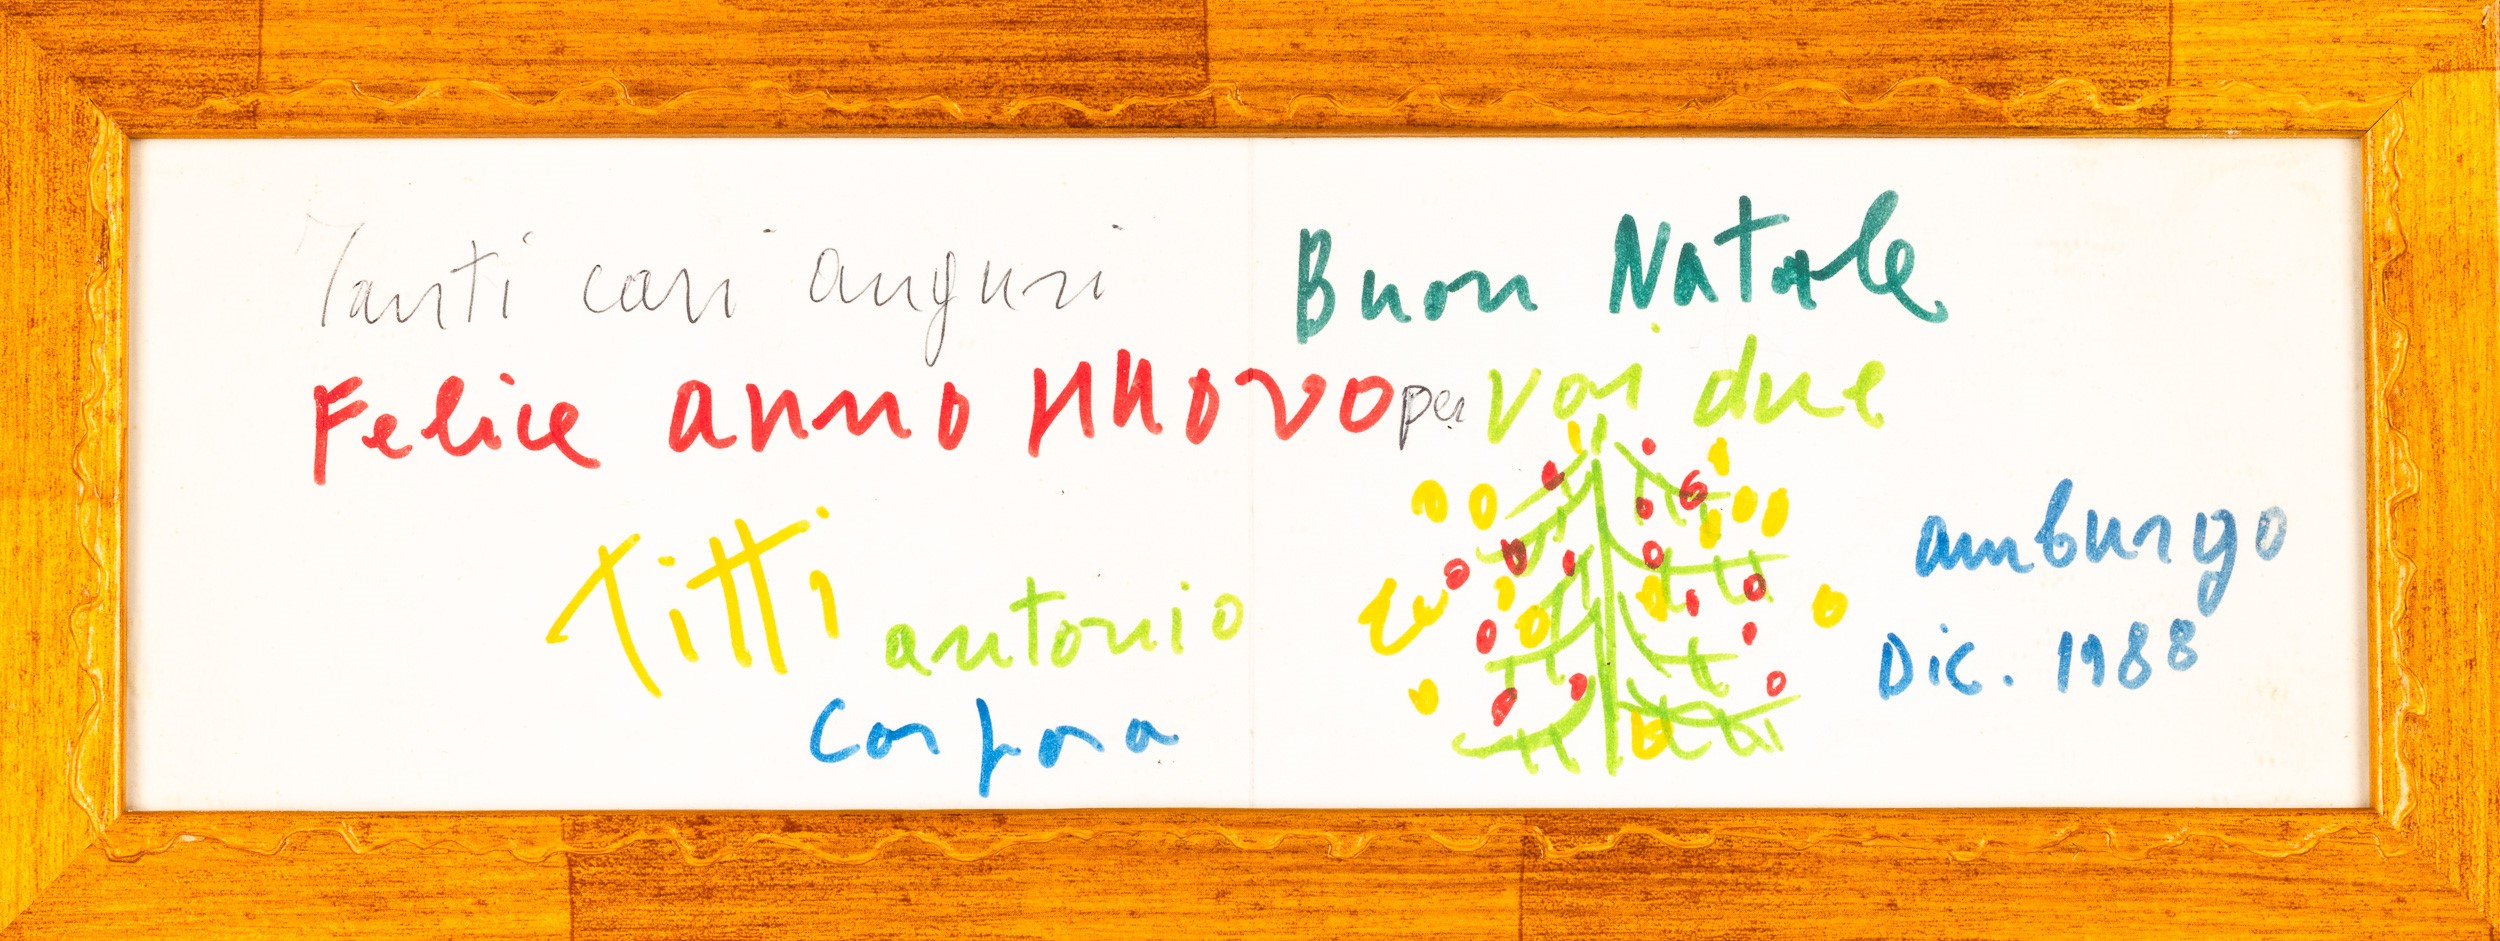 Tanti cari auguri
Buon Natale
Felice anno nuovo per voi due
Titti antonio
Corpora
amburgo
Dic. 1988